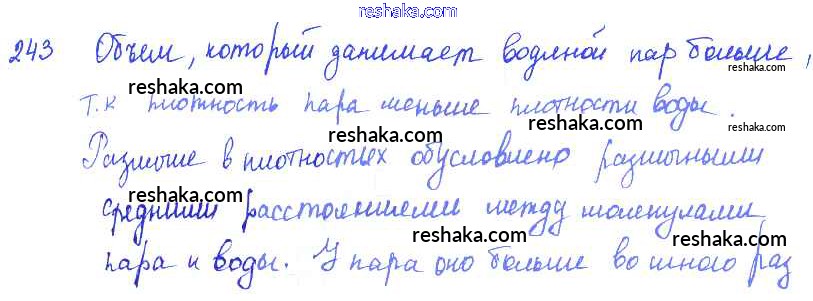 reshaka.com
243 Объем, который занимает водяной пар больше,
reshaka.com
reshaka.com
т.к плотность пара меньше плотности воды.
reshaka.com
reshaka.com
reshaka.com
Различие в плотностях обусловлено различными
reshaka.com
средними расстояниями между молекулами
reshaka.com
reshaka.com
пара и воды. У пара оно больше во много раз
reshaka.com